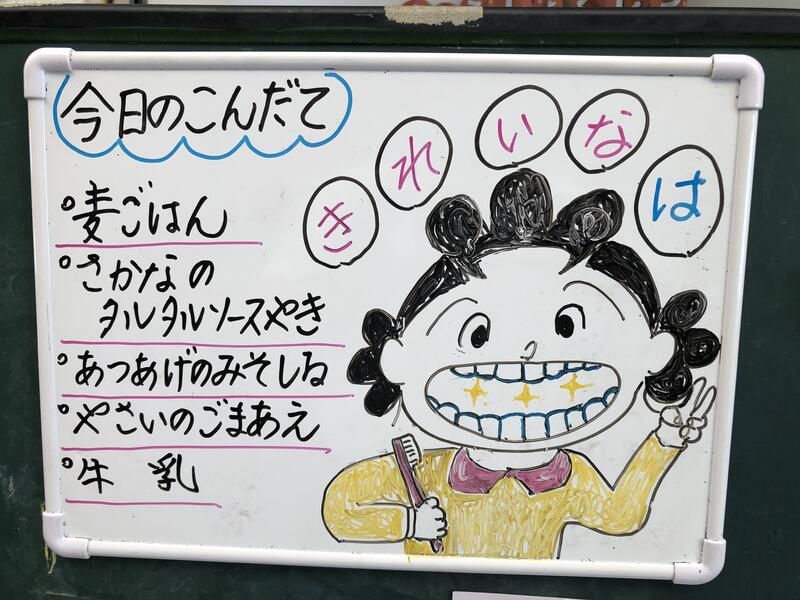 今日のこんだて
きれいなは
。麦ごはん
。さかなの
タルタルソースやき
。あつあげのみそしる
。やさいのごまあえ
。牛 乳